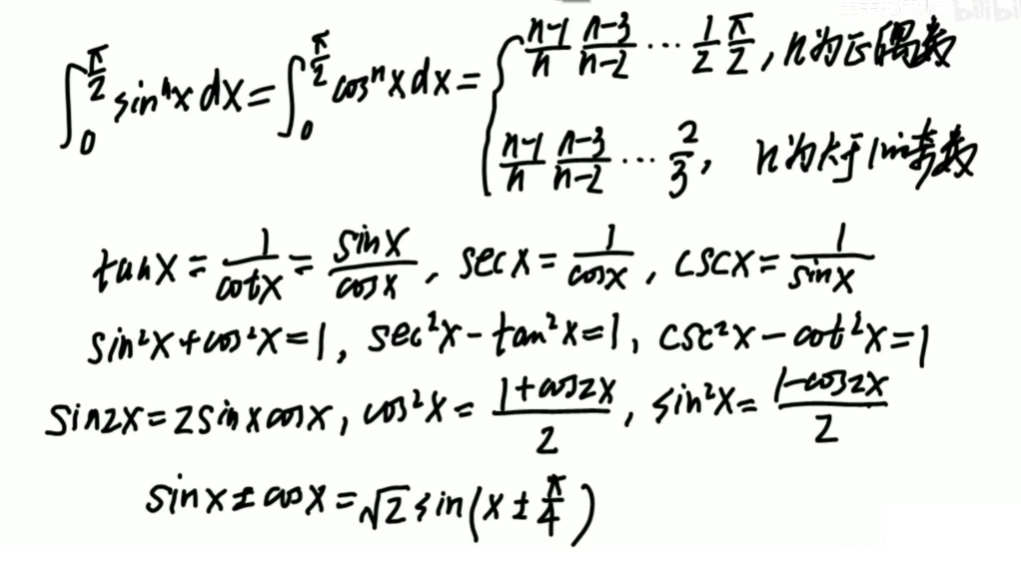 ∫₀^{π/2} sinⁿx dx = ∫₀^{π/2} cosⁿx dx = { (n-1)/n (n-3)/(n-2) ⋯ 1/2 π/2, n为正偶数
(n-1)/n (n-3)/(n-2) ⋯ 2/3, n为大于1的奇数
tanx = 1/cotx = sinx/cosx, secx = 1/cosx, cscx = 1/sinx
sin²x+cos²x=1, sec²x-tan²x=1, csc²x-cot²x=1
sin2x=2sinxcosx, cos²x=(1+cos2x)/2, sin²x=(1-cos2x)/2
sinx±cosx=√2 sin(x±π/4)